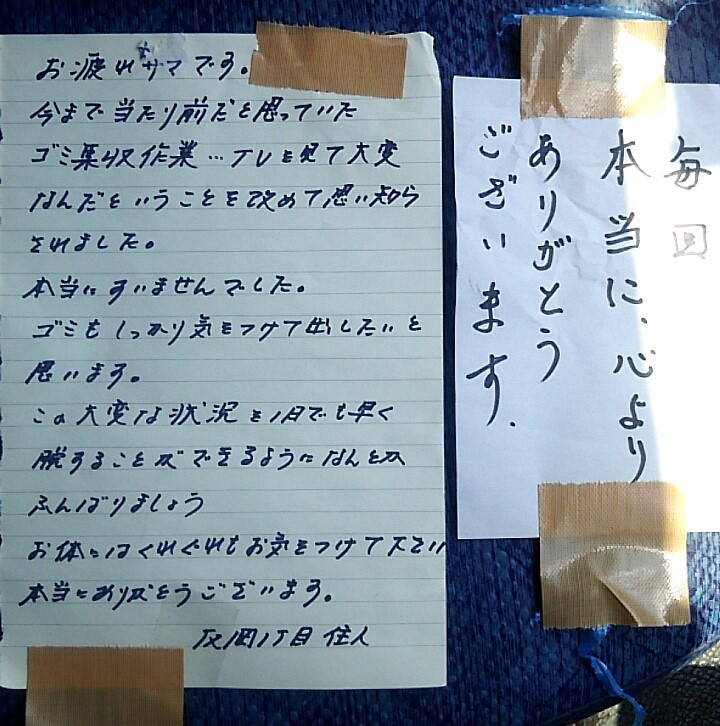 お疲れサマです。
今まで当たり前だと思っていた
ゴミ集収作業…TVを見て大変
なんだということを改めて思い知ら
されました。
本当にすいませんでした。
ゴミもしっかり気をつけて出したいと
思います。
この大変な状況を1日でも早く
脱することができるようになんとか
ふんばりましょう
お体にはくれぐれもお気をつけて下さい
本当にありがとうございます。
1丁目 住人
毎回
本当に、心より
ありがとう
ございます.